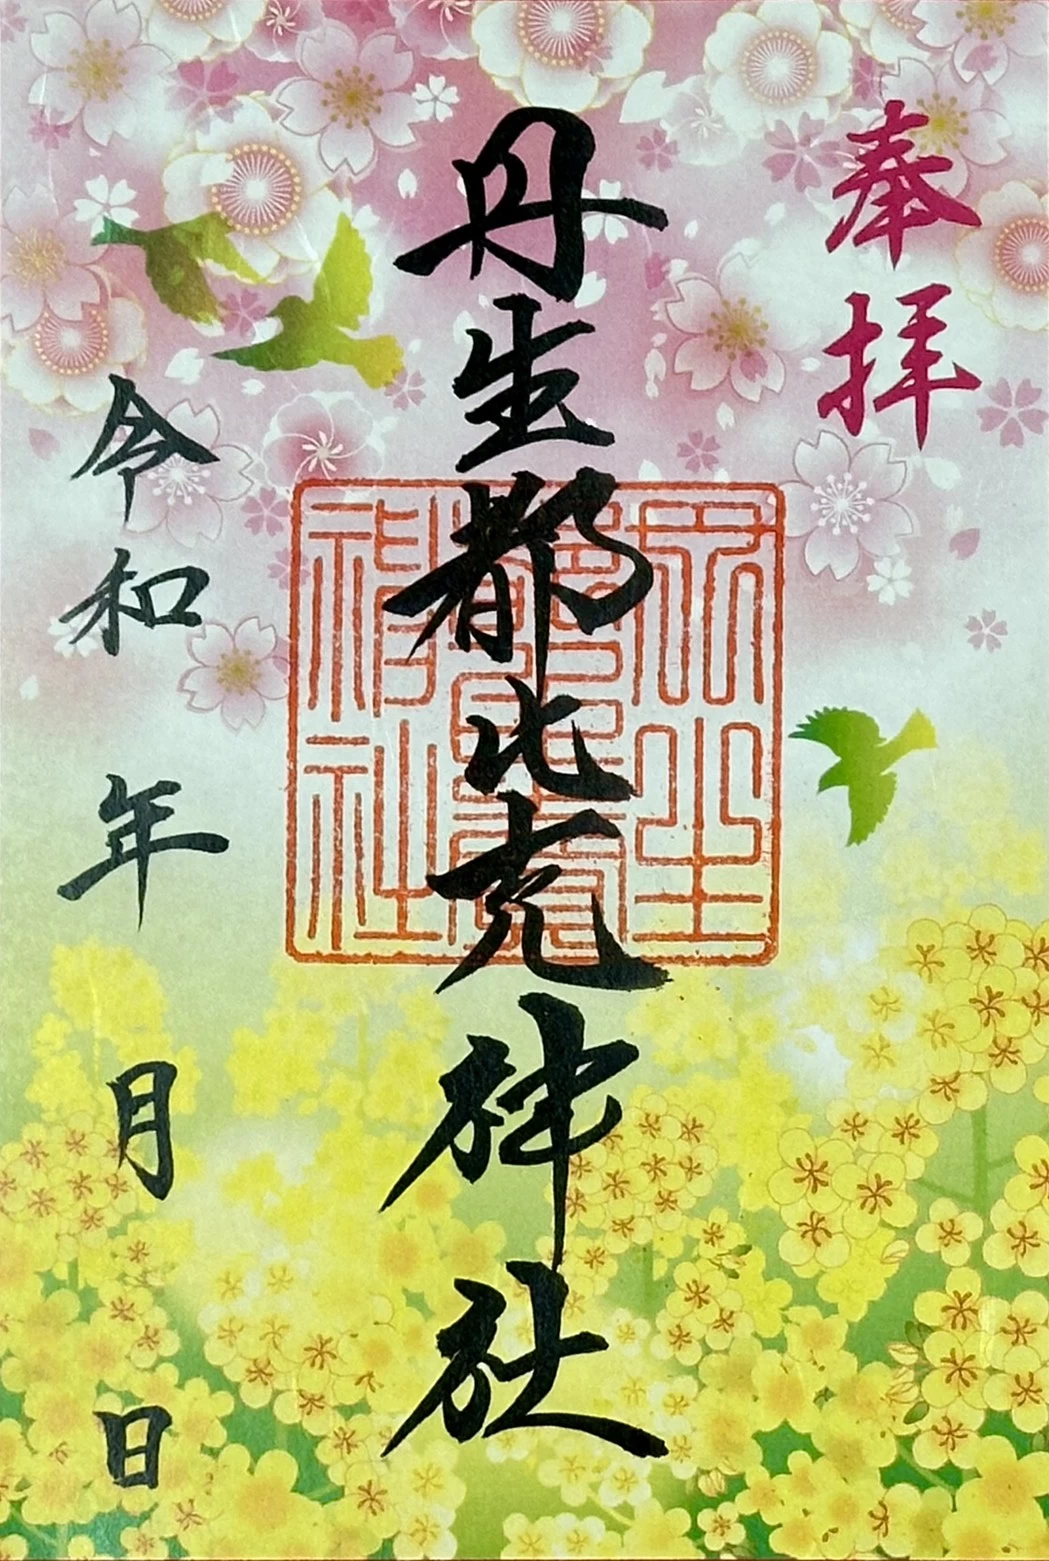 奉拝
丹生都比売神社
丹生
都比賣
神社
令和 年 月 日